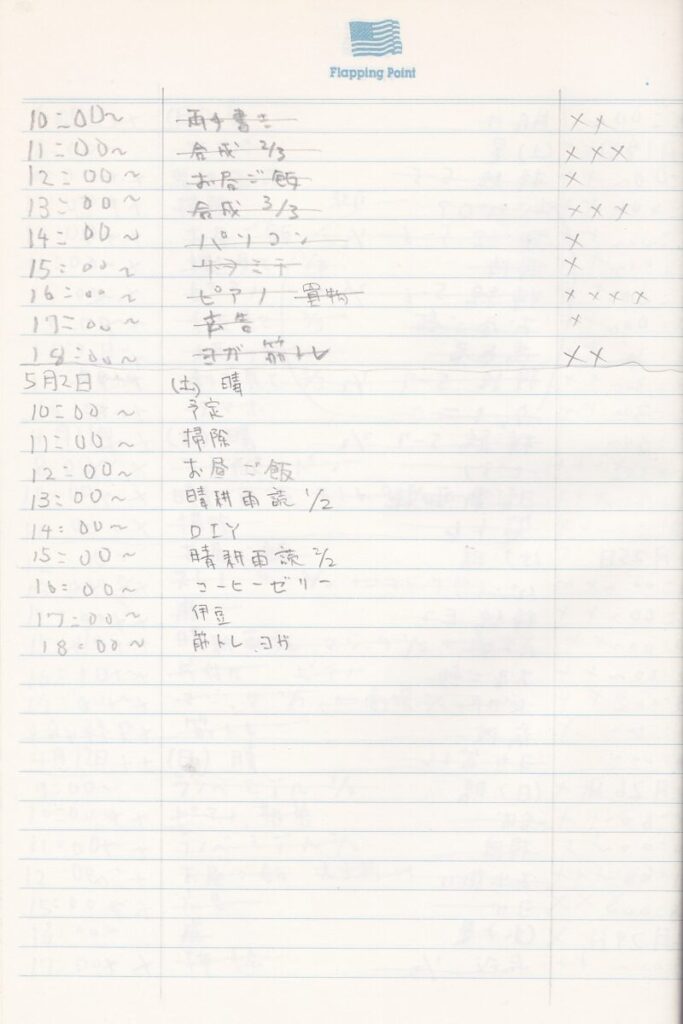 Flapping Point
10:00〜 両手書き ××
11:00〜 合成 2/3 ×××
12:00〜 お昼ご飯 ×
13:00〜 合成 3/3 ×××
14:00〜 パソコン ×
15:00〜 ×
16:00〜 ピアノ 買物 ××××
17:00〜 ×
18:00〜 ヨガ 筋トレ ××
5月2日 (土) 晴
10:00〜 予定
11:00〜 掃除
12:00〜 お昼ご飯
13:00〜 晴耕雨読 1/2
14:00〜 DIY
15:00〜 晴耕雨読 2/2
16:00〜 コーヒーゼリー
17:00〜 伊豆
18:00〜 筋トレ、ヨガ